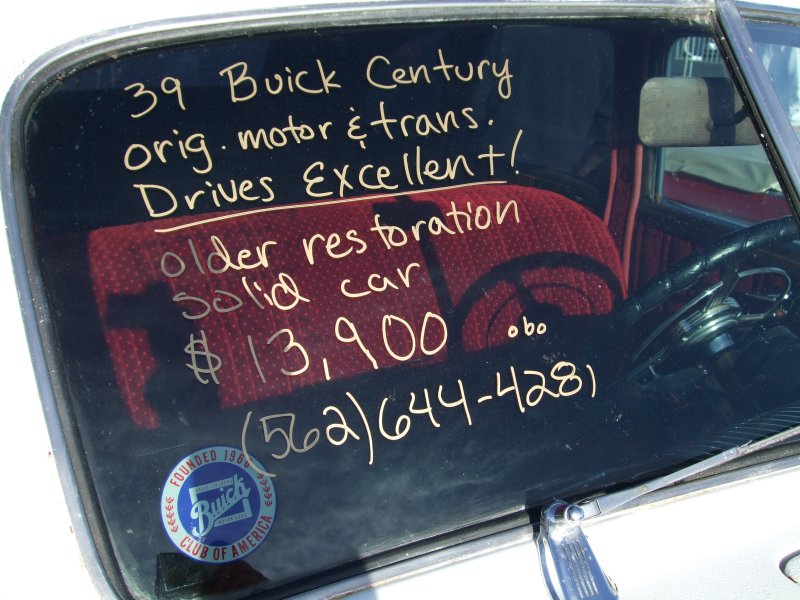 39 Buick Century
orig. motor & trans.
Drives Excellent!
older restoration
solid car
$13,900 obo
(562)644-4281
FOUNDED 1966
Buick
CLUB OF AMERICA